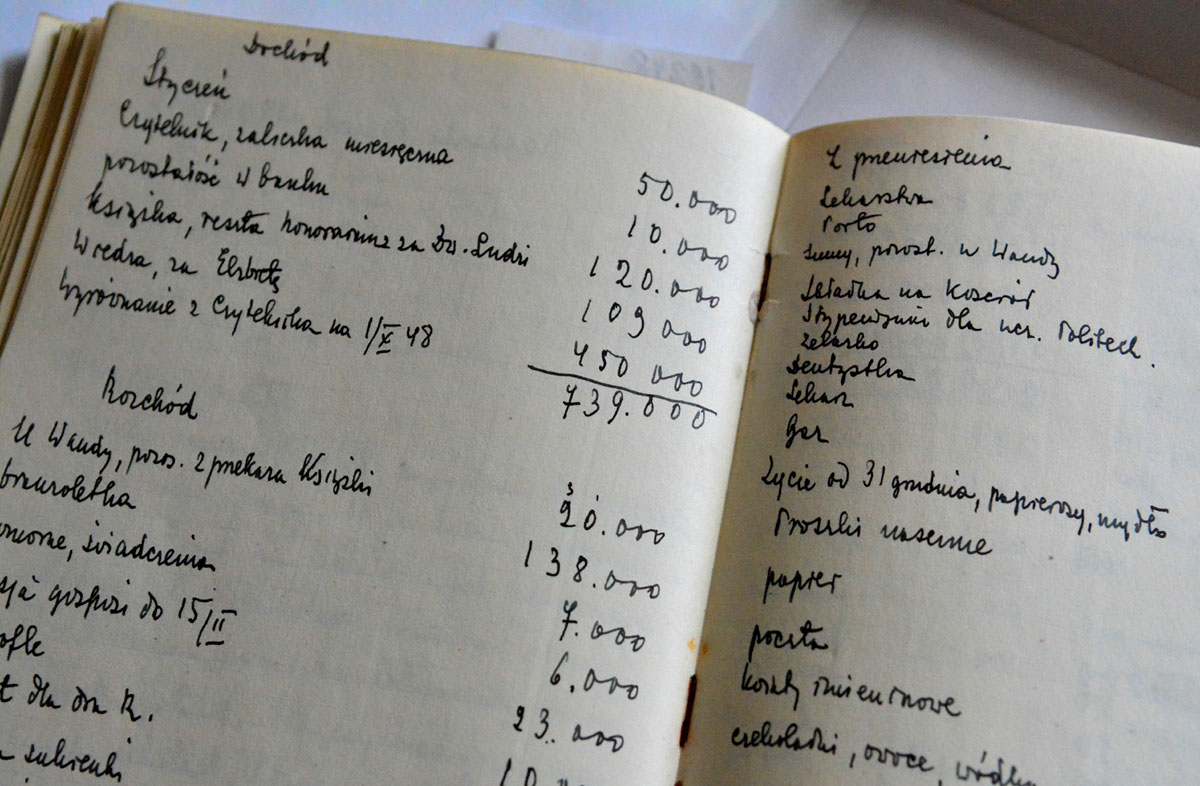 Dochód
Styczeń
Czytelnik, zaliczka miesięczna 50.000
pozostałość w banku 10.000
Książka, reszta honorarium za Dw. Ludzi 120.000
Wiedza, za Elżbietę 109 000
Wyrównanie z Czytelnika na 1/X 48 450 000
739.000
Rozchód
U Wandy, pozos. z przekazu Książki 20.000
bransoletka 138.000
świadczenia 7.000
gosposi do 15/II 6.000
23.000
dla dra R.
sukienki
Z przeniesienia
Lekarstwa
Porto
pozost. w Wandy
Składka na Kościół
Stypendium dla ucz. Politech.
Żelazko
Dentystka
Lekarz
Gaz
Życie od 31 grudnia, papierosy, mydło
Proszki nasenne
papier
poczta
koszty imieninowe
czekoladki, owoce, wódka